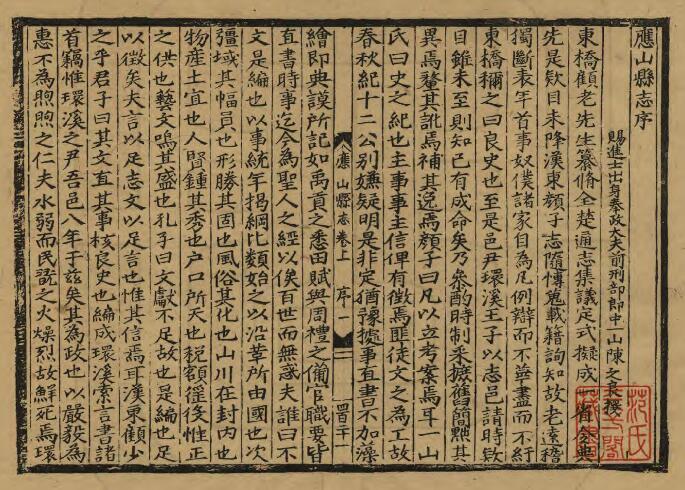 應山縣志序
賜進士出身奉政大夫前刑部郎中一山陳之良撰
東橋顧老先生纂脩全楚通志集議定式擬成一書條典
先是欵目未降漢東顏子志隨博蒐載籍詢知故老遠稽
獨斷表年首事奴僕諸家自為凡例辯而不華盡而不紆
東橋稱之曰良史也至是邑尹環溪王子以志邑請時欵
目雖未至則知已有成命矣乃叅酌時制采摭舊簡㸃其
異焉鰲其訛焉補其逸焉顏子曰凡以立考案焉耳一山
氏曰史之紀也主事事主信俾有徵焉匪徒文之為工故
春秋紀十二公別嫌疑明是非定猶豫據事直書不加藻
繪即典謨所記如禹貢之悉田賦與周禮之備官職要皆
直書時事迄今為聖人之經以俟百世而無惑夫誰曰不
文是編也以事統年揭綱比類始之以沿革所由國也次
彊域其幅員也形勝其固也風俗其化也山川在封內也
物産土宜也人賢鍾其秀也户口所天也稅額徭役惟正
之供也藝文鳴其盛也孔子曰文獻不足故也是編也足
以徵矣夫言以足志文以足言也惟其信焉耳漢東顧少
之乎君子曰其文直其事核良史也編成環溪索言書諸
首竊惟環溪之尹吾邑八年于兹矣其為政也以嚴毅為
惠不為煦煦之仁夫水弱而民翫之火燥烈故鮮死焉環
應山縣志卷上 序 一
范氏天一閣藏書